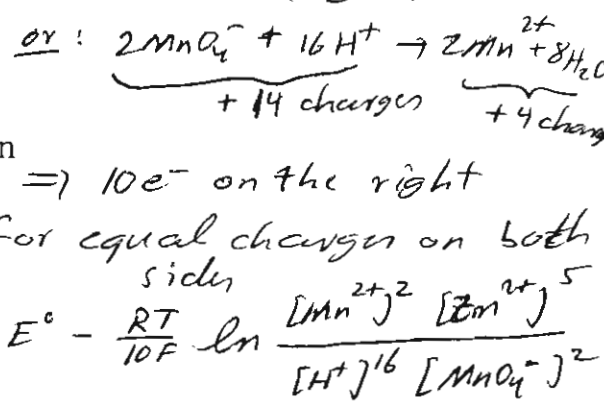 or : 2MnO₄⁻ + 16H⁺ → 2Mn²⁺ + 8H₂O
+ 14 charges + 4 charg
n
=> 10e⁻ on the right
for equal charges on both
sides
E° - RT/10F ln [Mn²⁺]² [Zn²⁺]⁵ / [H⁺]¹⁶ [MnO₄⁻]²